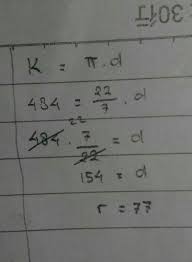 301π
K = π.d
484 = 22/7 . d
22
484 . 7/22 = d
154 = d
r = 77